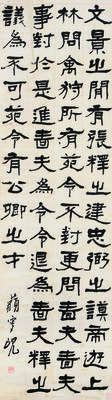 文景之間有張釋之建忠弼之謨帝游上
林問禽狩所有苑令不對更問嗇夫嗇夫
事對於是進嗇夫為令令退為嗇夫釋之
議為不可苑令有公卿之才